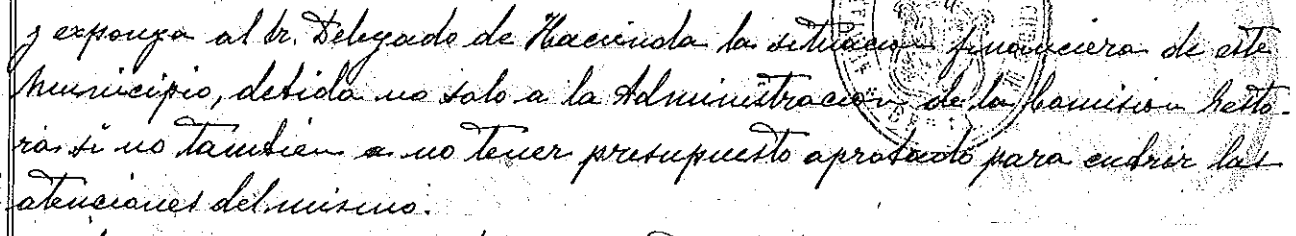 y exponga al Sr. Delegado de Hacienda la situacion financiera de este
Municipio, debida no solo a la Administracion de la Comision Gesto-
ra si no tambien a no tener presupuesto aprobado para cubrir las
atenciones del mismo.